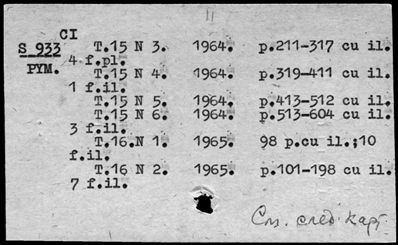 11
CI
S 933 T.15 N 3. 1964. p.211-317 cu il.
PYM. 4 f.pl.
T.15 N 4. 1964. p.319-411 cu il.
1 f.il.
T.15 N 5. 1964. p.413-512 cu il.
T.15 N 6. 1964. p.513-604 cu il.
3 f.il.
T.16.N 1. 1965. 98 p.cu il.;10
f.il.
T.16 N 2. 1965. p.101-198 cu il.
7 f.il.
См. след карт